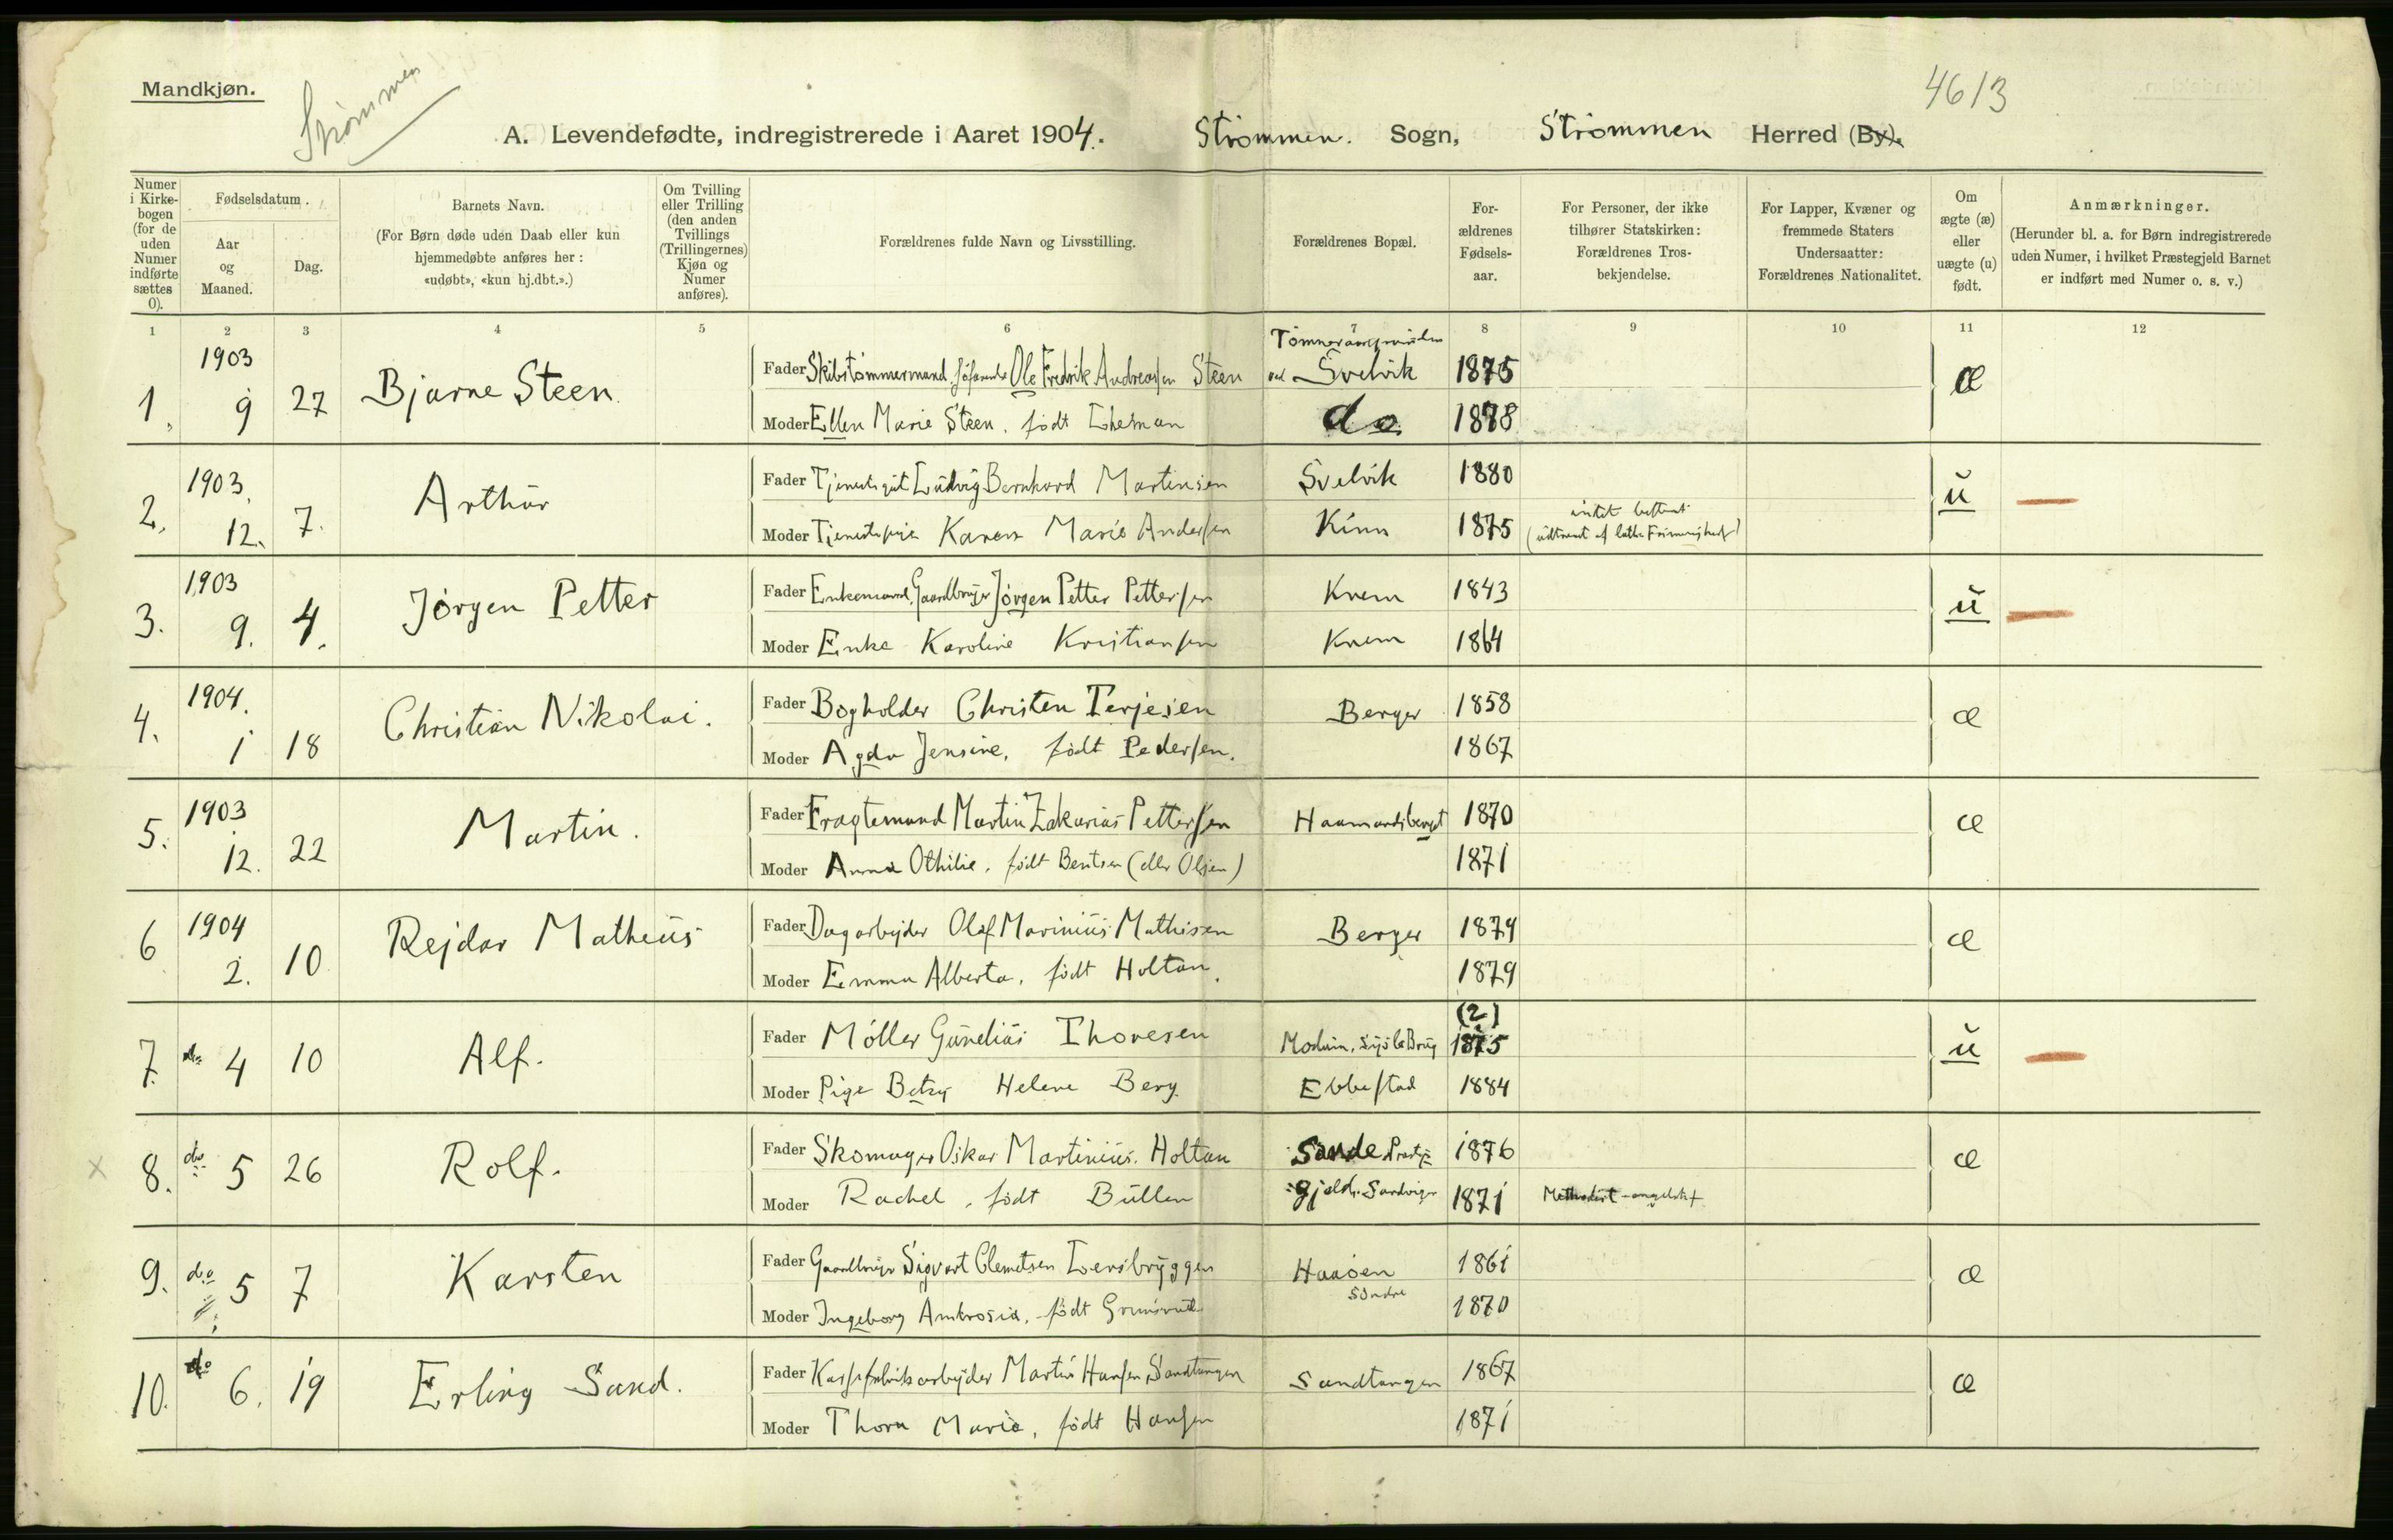 Mandkjøn.
Strømmen
4613
A. Levendefødte, indregistrerede i Aaret 1904. Strømmen. Sogn, Strømmen Herred (By).
Numer i Kirkebogen (for de uden Numer indførte sættes 0).
Fødselsdatum.
Aar og Maaned.
Dag.
Barnets Navn.
(For Børn døde uden Daab eller kun hjemmedøbte anføres her: «udøbt», «kun hj.dbt.».)
Om Tvilling eller Trilling (den anden Tvillings (Trillingernes) Kjøn og Numer anføres).
Forældrenes fulde Navn og Livsstilling.
Forældrenes Bopæl.
Forældrenes Fødselsaar.
For Personer, der ikke tilhører Statskirken: Forældrenes Trosbekjendelse.
For Lapper, Kvæner og fremmede Staters Undersaatter: Forældrenes Nationalitet.
Om ægte (æ) eller uægte (u) født.
Anmærkninger.
(Herunder bl. a. for Børn indregistrerede uden Numer, i hvilket Præstegjeld Barnet er indført med Numer o. s. v.)
1 2 3 4 5 6 7 8 9 10 11 12
1. 1903 9 27 Bjarne Steen
Fader Skibstømmermand Ole Fredrik Andreassen Steen Svelvik 1875 æ
Moder Ellen Marie Steen, født do 1878
2. 1903. 12. 7. Arthur
Fader Ludvig Bernhard Martinsen Svelvik 1880 u
Moder Tjenestepige Karen Marie Andersen Kinn 1875
3. 1903 9. 4. Jørgen Petter
Fader Enkemand, Gaardbruger Jørgen Petter Pettersen Krem 1843 u
Moder Enke Karoline Kristiansen Krem 1864
4. 1904. 1 18 Christian Nikolai.
Fader Bogholder Christen Terjesen Berger 1858 æ
Moder Agda Jensine, født Pedersen. 1867
5. 1903 12. 22 Martin.
Fader Fragtemand Martin Zakarias Pettersen 1870 æ
Moder Anna Othilie, født Bentsen (eller Olsen) 1871
6 1904 2. 10 Rejdar Matheus
Fader Dagarbejder Olaf Marinius Mathisen Berger 1879 æ
Moder Emma Alberta, født Holtan. 1879
7. do 4 10 Alf.
(2)
Fader Møller Gunelius Thoresen Modum, 1875 u
Moder Pige Betsy Helene Berg Ebbestad 1884
X 8. do 5 26 Rolf.
Fader Skomager Oskar Martinius Holtan Sande Præste 1876 æ
Moder Rachel, født Bullen gjeld. 1871 Methodist
9. do 5 7 Karsten
Fader Gaardbruger Sigvart Clemetsen Lersbryggen Haaøen 1861 æ
Søndre
Moder Ingeborg Ambrosia, født 1870
10. do 6. 19 Erling Sand.
Fader Martin Hansen Sandtangen Sandtangen 1867 æ
Moder Thora Marie, født Hansen 1871